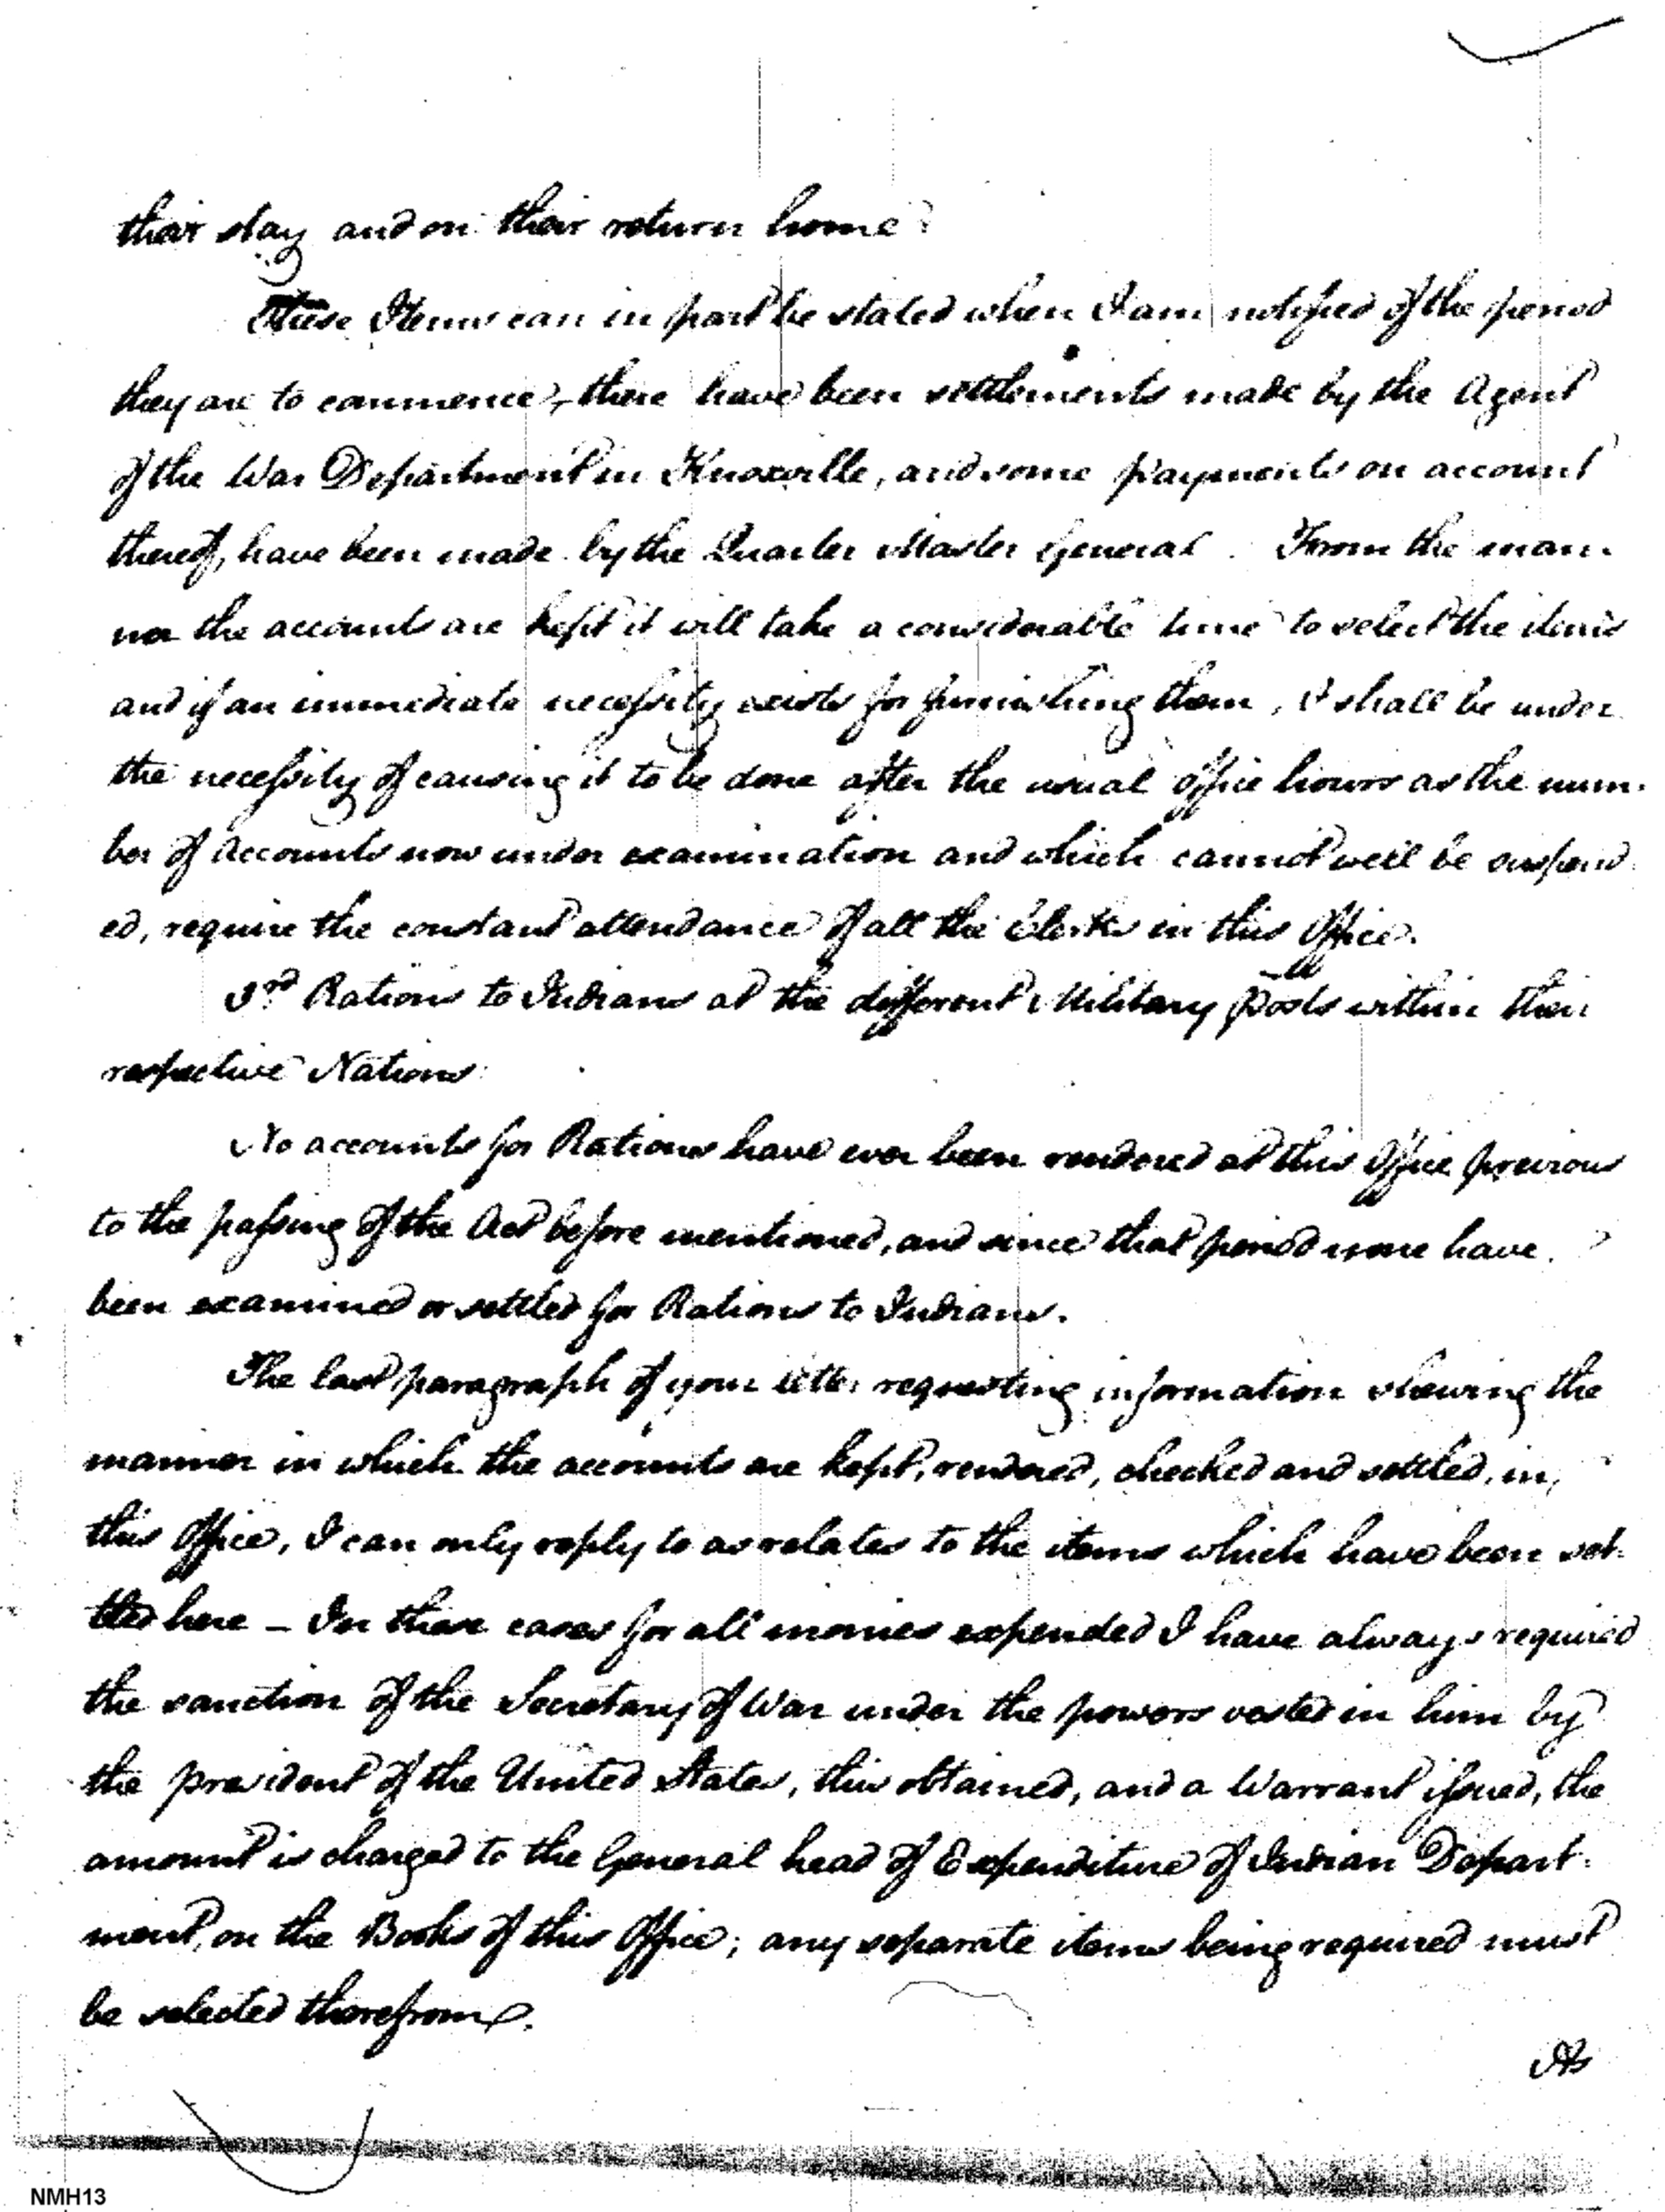 their stay and on their return home?
These Items can in part be stated when I am notified of the period
they are to commence, there have been settlements made by the Agent
of the War Department in Knoxville, and some payments on account
thereof, have been made by the Quarter Master General. From the man-
ner the accounts are kept it will take a considerable time to select the items
and if an immediate necessity exists for furnishing them, I shall be under
the necessity of causing it to be done after the usual office hours as the num-
ber of Accounts now under examination and which cannot well be suspend
ed, require the constant attendance of all the Clerks in this Office.
3rd Rations to Indians at the different Military Posts within their
respective Nations
No accounts for Rations have ever been rendered at this Office previous
to the passing of the Act before mentioned, and since that period none have
been examined or settled for Rations to Indians.
The last paragraph of your letter requesting information shewing the
manner in which the accounts are kept, rendered, checked and settled, in,
this Office, I can only reply to as relates to the items which have been set-
tled here – In these cases for all monies expended I have always required
the sanction of the Secretary of War under the powers vested in him by
the president of the United States, this obtained, and a Warrant issued, the
amount is charged to the General head of Expenditure of Indian Depart-
ment, on the Books of this Office; any separate items being required must
be selected therefrom.
As
NMH13